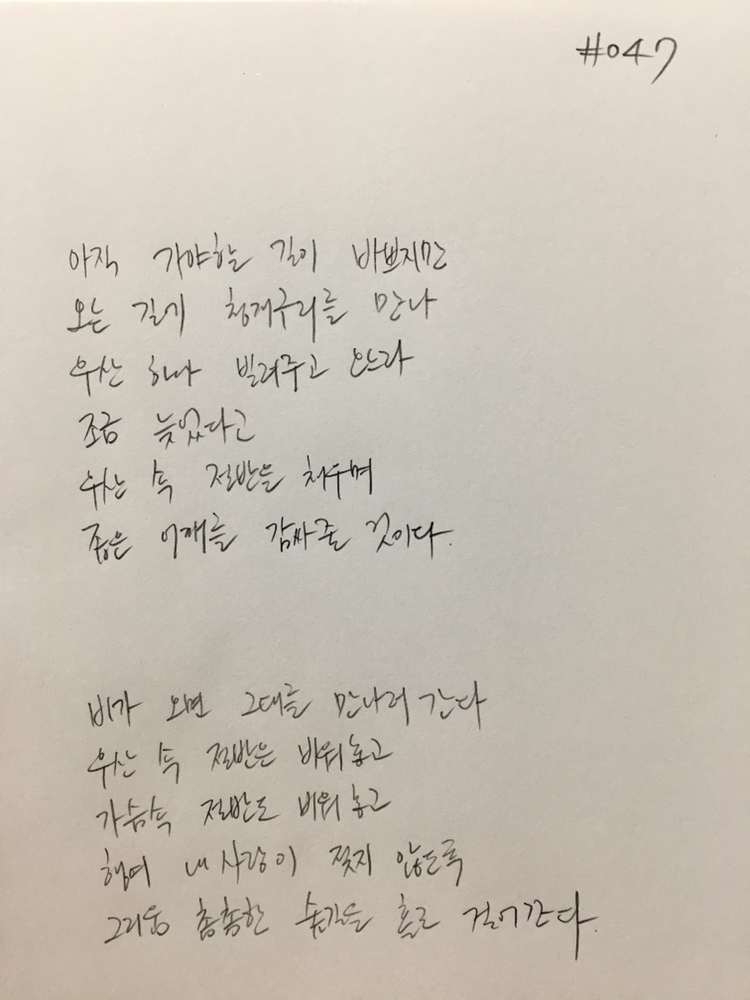 #047
아직 가야할 길이 바쁘지만
오는 길에 청개구리를 만나
우산 하나 빌려주고 오느라
조금 늦었다고
우산 속 절반을 채우며
좁은 어깨를 감싸줄 것이다.
비가 오면 그대를 만나러 간다
우산 속 절반은 비워놓고
가슴속 절반도 비워놓고
행여 내 사랑이 젖지 않도록
그리움 촘촘한 숲길을 홀로 걸어간다.